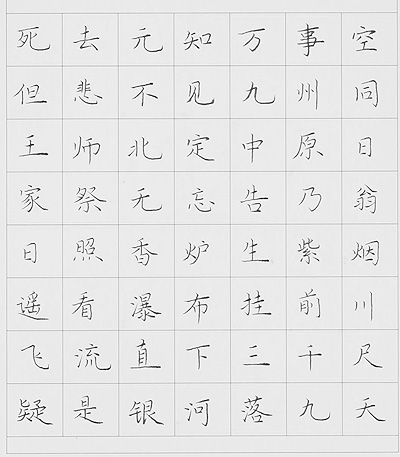 死去元知万事空
但悲不见九州同
王师北定中原日
家祭无忘告乃翁
日照香炉生紫烟
遥看瀑布挂前川
飞流直下三千尺
疑是银河落九天